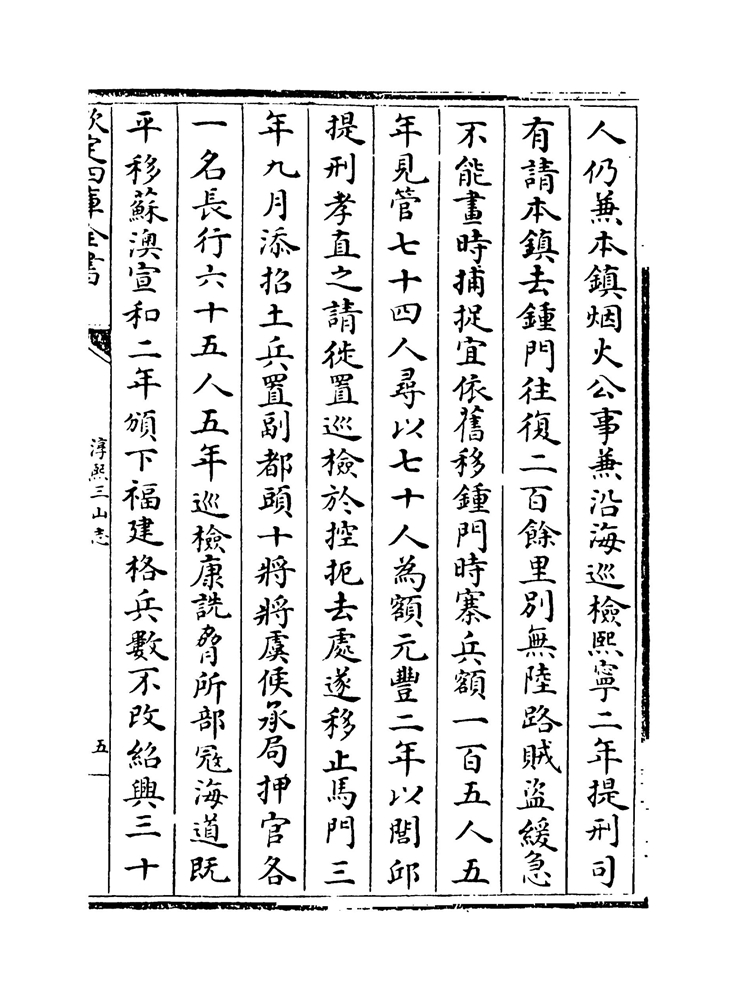 人仍兼本鎮烟火公事兼沿海巡檢熙寧二年提刑司
有請本鎮去鍾門往復二百餘里別無陸路賊盜緩急
不能畫時捕捉宜依舊移鍾門時寨兵額一百五人五
年見管七十四人尋以七十人為額元豐二年以閭邱
提刑孝直之請徙置巡檢於控扼去處遂移止馬門三
年九月添招土兵置副都頭十將將虞候承局押官各
一名長行六十五人五年巡檢康詵脅所部冦海道既
平移蘇澳宣和二年頒下福建格兵數不改紹興三十
欽定四庫全書
淳熙三山志
五